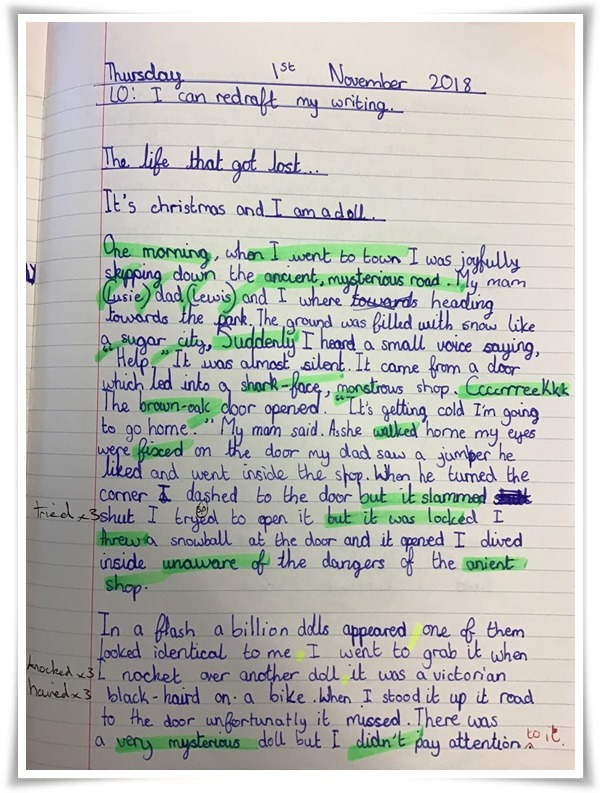 Thursday 1st November 2018
LO: I can redraft my writing.
The life that got lost...
It's christmas and I am a doll.
One morning, when I went to town I was joyfully
skipping down the ancient, mysterious road. My mam
(Lusie) dad (Lewis) and I where towards heading
towards the park. The ground was filled with snow like
a sugar city, Suddenly I heard a small voice saying,
"Help." It was almost silent. It came from a door
which led into a shark-face, monstrows shop. CcccrrreeKkk
The brown-oak door opened. "It's getting cold I'm going
to go home." My mam said. Asshe walked home my eyes
were fixced on the door my dad saw a jumper he
liked and went inside the shop. When he turned the
corner I dashed to the door but it slammed
tried x3 shut I tryed to open it but it was locked I
threw a snowball at the door and it opened I dived
inside unaware of the dangers of the anient
shop.
In a flash a billion dolls appeared one of them
looked identical to me. I went to grab it when
knocked x3 I nocket over another doll it was a victorian
haired x3 black-haird on a bike. When I stood it up it road
to the door unfortunatly it mussed. There was
a very mysterious doll but I didn't pay attention to it.